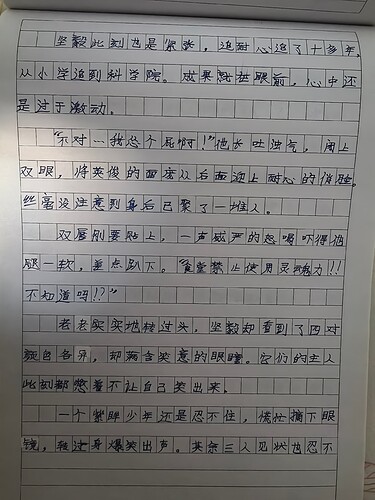 坚毅此刻也是紧张，追耐心追了十多年，
从小学追到科学院。成果就在眼前，心中还
是过于激动。
"不对…我怂个屁啊！"他长吐浊气，闭上
双眼，将英俊的面庞从后面迎上耐心的俏脸，
丝毫没注意到身后已聚了一堆人。
双唇刚要贴上，一声威严的怒喝吓得他
腿一软，差点趴下。"食堂禁止使用灵魂力!!
不知道吗!?"
老老实实地转过头，坚毅却看到了四对
颜色各异，却满含笑意的眼瞳。它们的主人
此刻都憋着不让自己笑出来。
一个紫眸少年还是忍不住，慌忙摘下眼
镜，转过身爆笑出声。其余三人见状也忍不